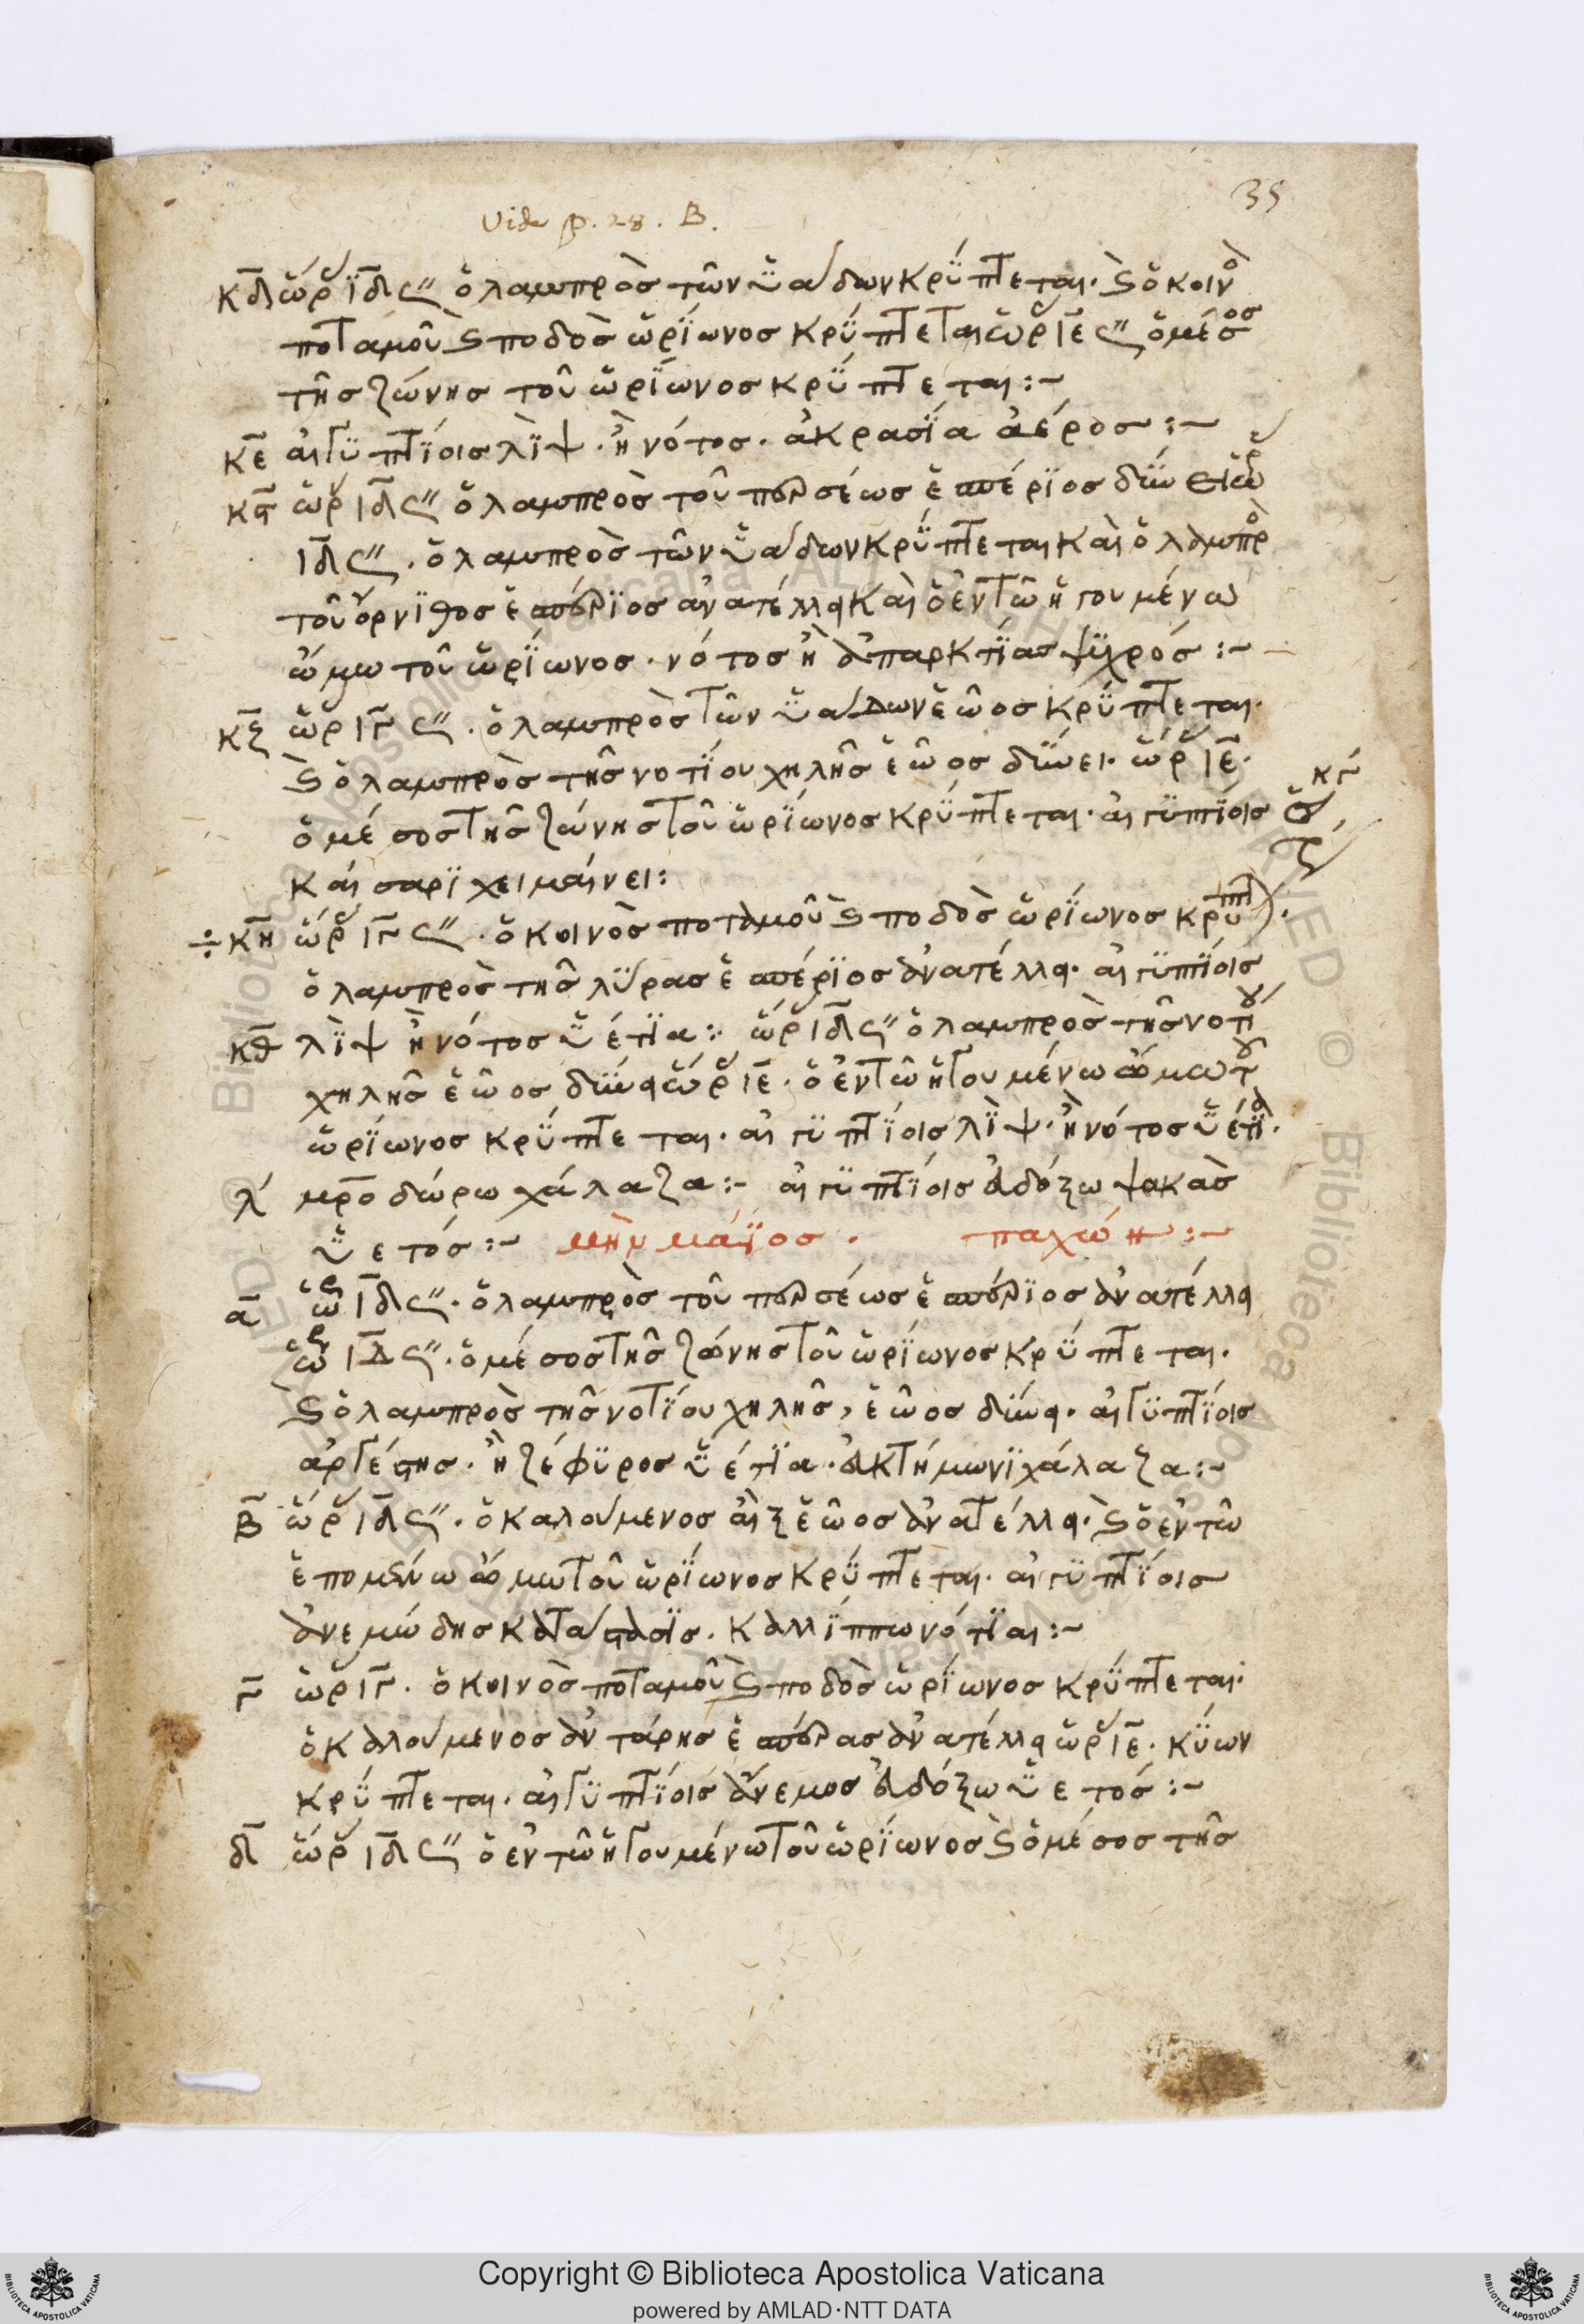 35
Vide p. 28. B.
κδ ὡρ ιδ ϛ″ ὁ λαμπρὸσ τῶν ὑάδων κρύπτεται· ϗ ὁ κοινὸ
ποταμοῦ ϗ ποδὸσ ὠρίωνοσ κρύπτεται ὡρ ιε ϛ″ ὁ μέσοσ
τῆσ ζώνησ τοῦ ὠρίωνοσ κρύπτεται:~
κε αἰγυπτίοισ λὶψ· ἢ νότοσ· ἀκρασία ἀέροσ:~
κϛ ὡρ ιδ ϛ″ ὁ λαμπρὸσ τοῦ περσέωσ ἑσπέριοσ δύνει ὡρ
ιδ ϛ″. ὁ λαμπρὸσ τῶν ὑάδων κρύπτεται καὶ ὁ λαμπρὸ
τοῦ ὄρνιθοσ ἑσπέριοσ ἀνατέλλει καὶ ὁ ἐν τῶ ἡγουμένω
ὤμω τοῦ ὠρίωνοσ· νότοσ ἢ ἀπαρκτίασ ψυχρόσ:~
κζ ὡρ ιγ ϛ″. ὁ λαμπρὸσ τῶν ὑάδων ἑῶοσ κρύπτεται·
ϗ ὁ λαμπρὸσ τῆσ νοτίου χηλῆσ ἑῶοσ δύνει· ὡρ ιε·
ὁ μέσοσ τῆσ ζώνησ τοῦ ὠρίωνοσ κρύπτεται· αἰγυπτίοισ
κγ
καίσαρι χειμαίνει:
÷ κη ὡρ ιγ ϛ″. ὁ κοινὸσ ποταμοῦ ϗ ποδὸσ ὠρίωνοσ κρυπτ).
ὁ λαμπρὸσ τῆσ λύρασ ἑσπέριοσ ἀνατέλλει· αἰγυπτίοισ
κθ λὶψ ἢ νότοσ ὑέτια: ὡρ ιδ ϛ″ ὁ λαμπρὸσ τῆσ νοτίου
χηλῆσ ἑῶοσ δύνει ὡρ ιε· ὁ ἐν τῶ ἡγουμένω ὤμω τοῦ
ὠρίωνοσ κρύπτεται· αἰγυπτίοισ λὶψ· ἢ νότοσ ὑέτια·
λ μροδώρω χάλαζα:~ αἰγυπτίοισ ἀδόξω ψακὰσ
ὑετόσ:~ μὴν μάϊοσ· παχών:~
α ὡρ ιδ ϛ″. ὁ λαμπρὸσ τοῦ περσέωσ ἑσπέριοσ ἀνατέλλει
ὡρ ιδ ϛ″. ὁ μέσοσ τῆσ ζώνησ τοῦ ὠρίωνοσ κρύπτεται·
ϗ ὁ λαμπρὸσ τῆσ νοτίου χηλῆσ, ἑῶοσ δύνει· αἰγυπτίοισ
ἀργέστησ· ἢ ζέφυροσ ὑέτια· ἀκτήμωνι χάλαζα:~
β ὡρ ιδ ϛ″. ὁ καλούμενοσ αἲξ ἑῶοσ ἀνατέλλει· ϗ ὁ ἐν τῶ
ἑπομένω ὤμω τοῦ ὠρίωνοσ κρύπτεται· αἰγυπτίοισ
ἀνεμώδησ κατάστασισ. καλλίππω νότιαι:~
γ ὡρ ιγ. ὁ κοινὸσ ποταμοῦ ϗ ποδὸσ ὠρίωνοσ κρύπτεται·
ὁ καλούμενοσ ἀντάρησ ἑσπέρασ ἀνατέλλει ὡρ ιε· κύων
κρύπτεται· αἰγυπτίοισ ἄνεμοσ ἀδόξω ὑετόσ:~
δ ὡρ ιδ ϛ″ ὁ ἐν τῶ ἡγουμένω τοῦ ὠρίωνοσ ϗ ὁ μέσοσ τῆσ
Copyright © Biblioteca Apostolica Vaticana
powered by AMLAD·NTT DATA